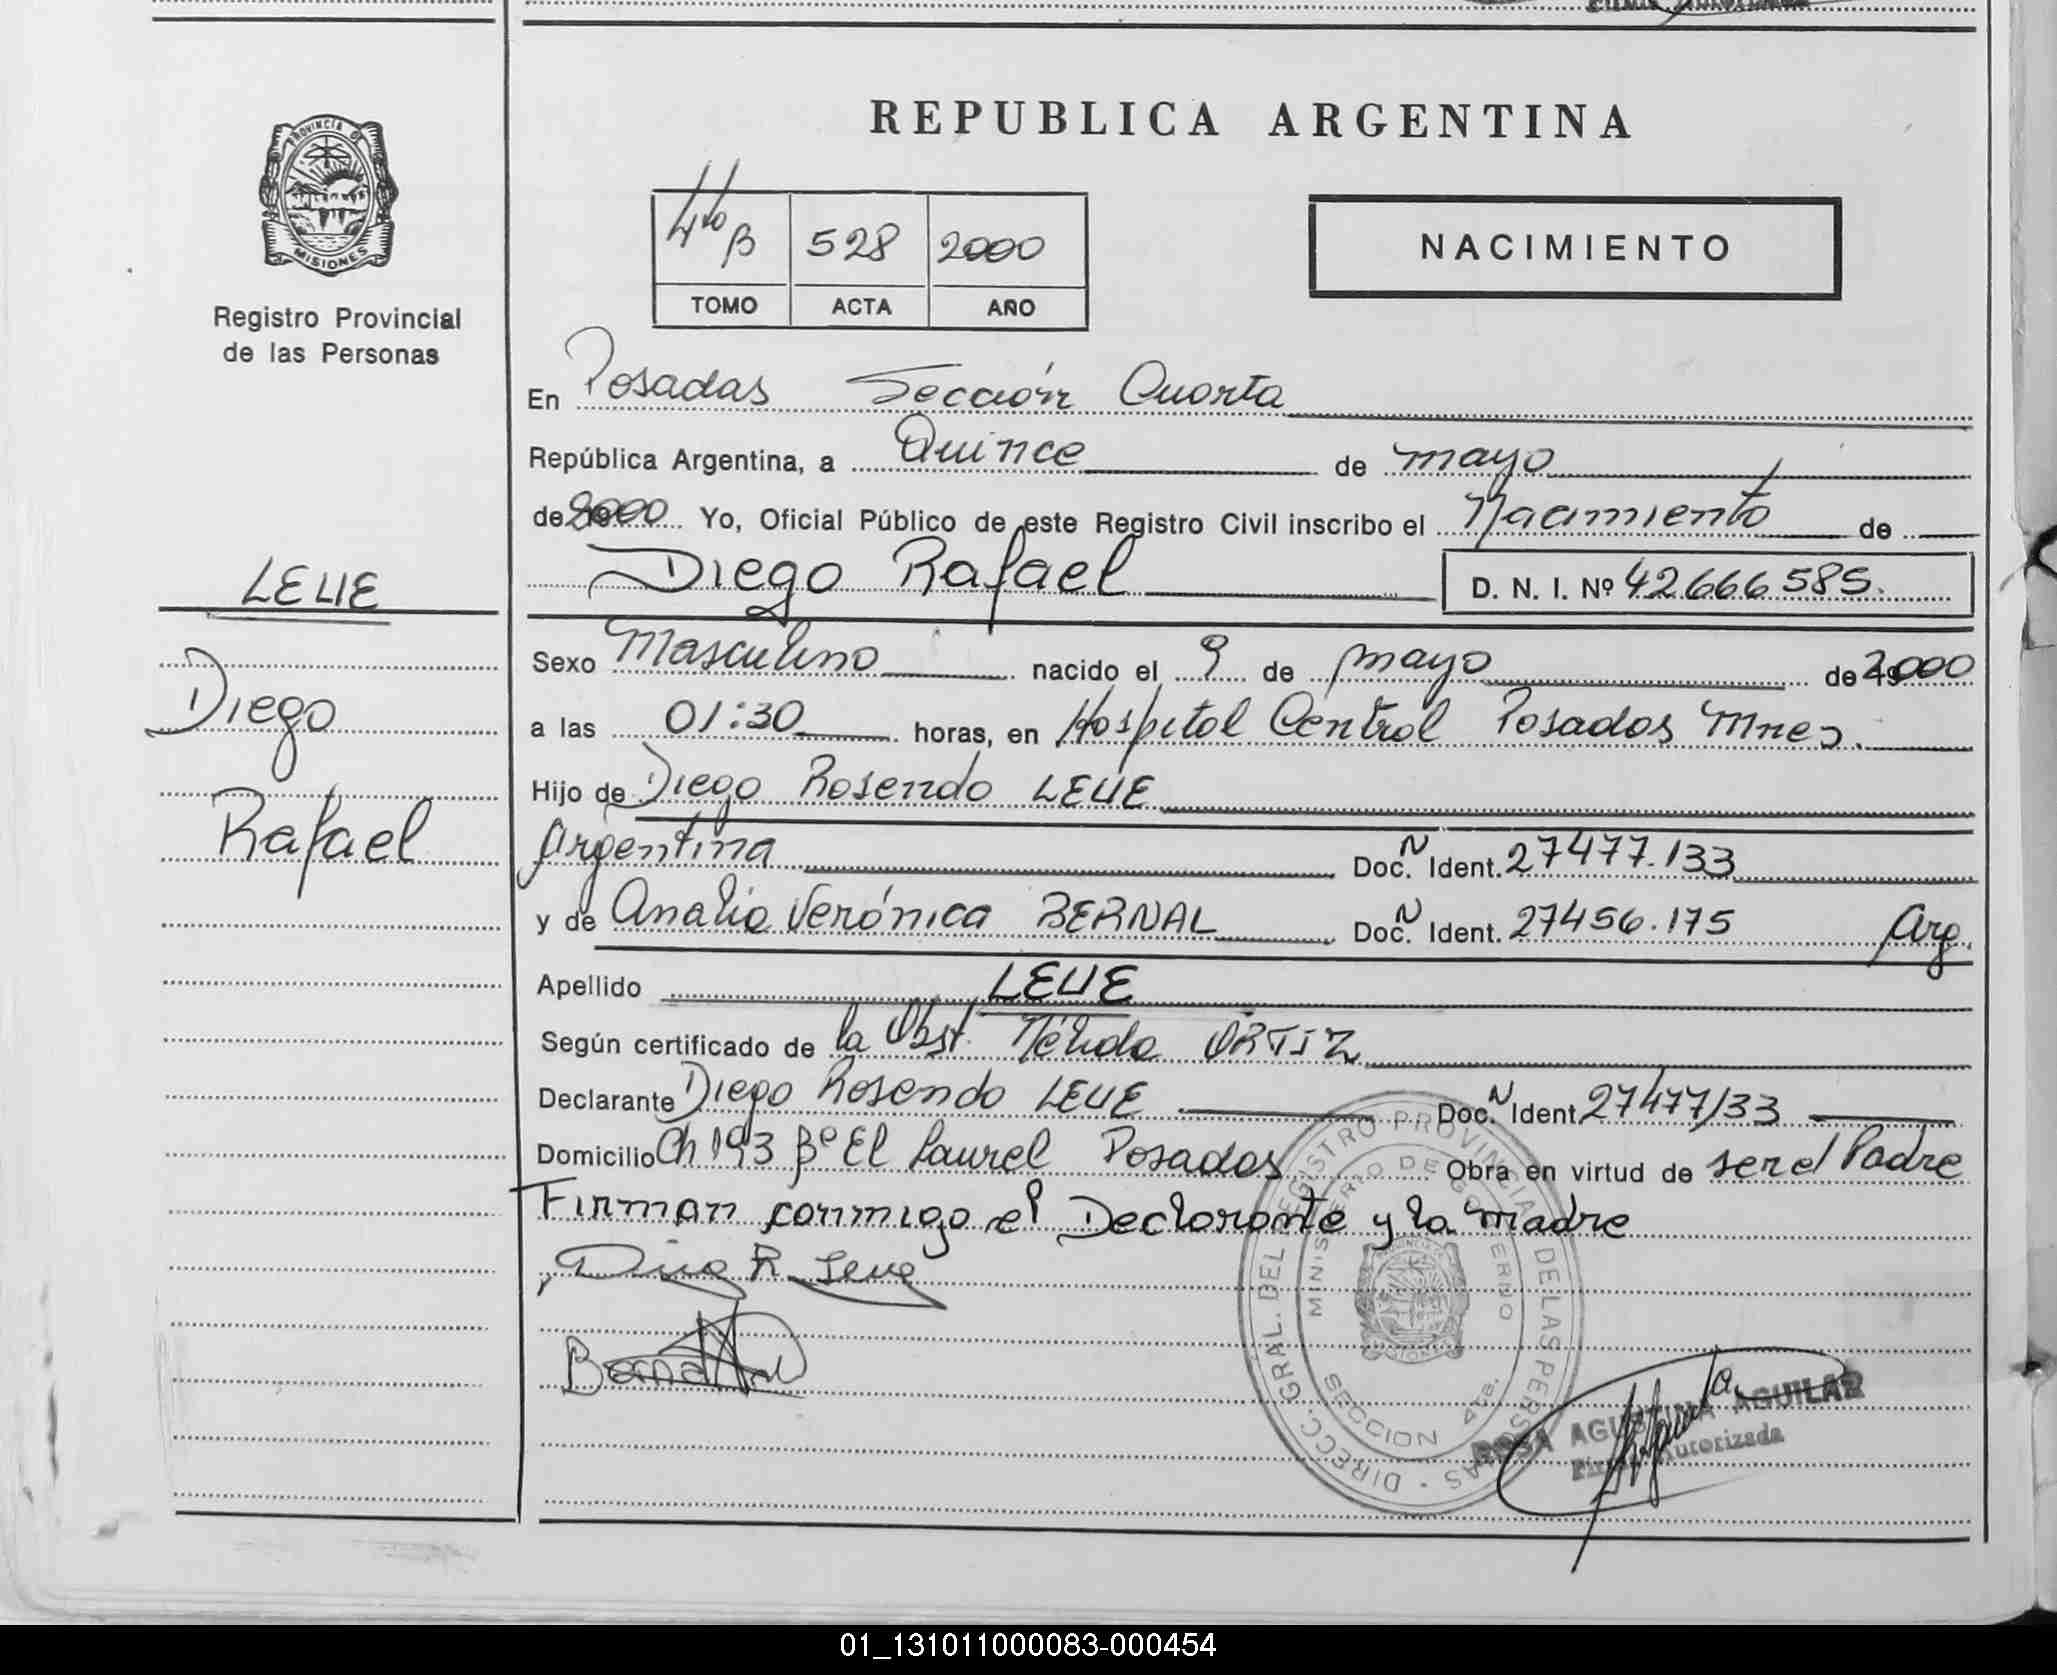 REPUBLICA ARGENTINA
PROVINCIA DE
MISIONES
Registro Provincial
de las Personas
4to B 528 2000
TOMO ACTA AÑO
NACIMIENTO
En Posadas Sección Cuarta
República Argentina, a Quince de mayo
de 2000 Yo, Oficial Público de este Registro Civil inscribo el Nacimiento de
Diego Rafael D. N. I. Nº 42.666.585.
LEUE
Diego
Rafael
Sexo Masculino nacido el 9 de mayo de 2000
a las 01:30 horas, en Hospital Central Posadas Mnes.
Hijo de Diego Rosendo LEUE
Argentina Doc. N Ident. 27477.133
y de Analia Verónica BERNAL Doc. N Ident. 27456.175 Arg.
Apellido LEUE
Según certificado de la Obst. Nélida ORTIZ
Declarante Diego Rosendo LEUE Doc. N Ident. 27477133
Domicilio Ch 193 Bº El Laurel Posadas Obra en virtud de ser el Padre
Firman conmigo el Declarante y la madre
Diego R Leue
Bernal
DIRECC. GRAL. DEL REGISTRO PROVINCIAL DE LAS PERSONAS
MINISTERIO DE GOBIERNO
SECCION 4ta.
ROSA AGUSTINA AGUILAR
Firma Autorizada
01_131011000083-000454